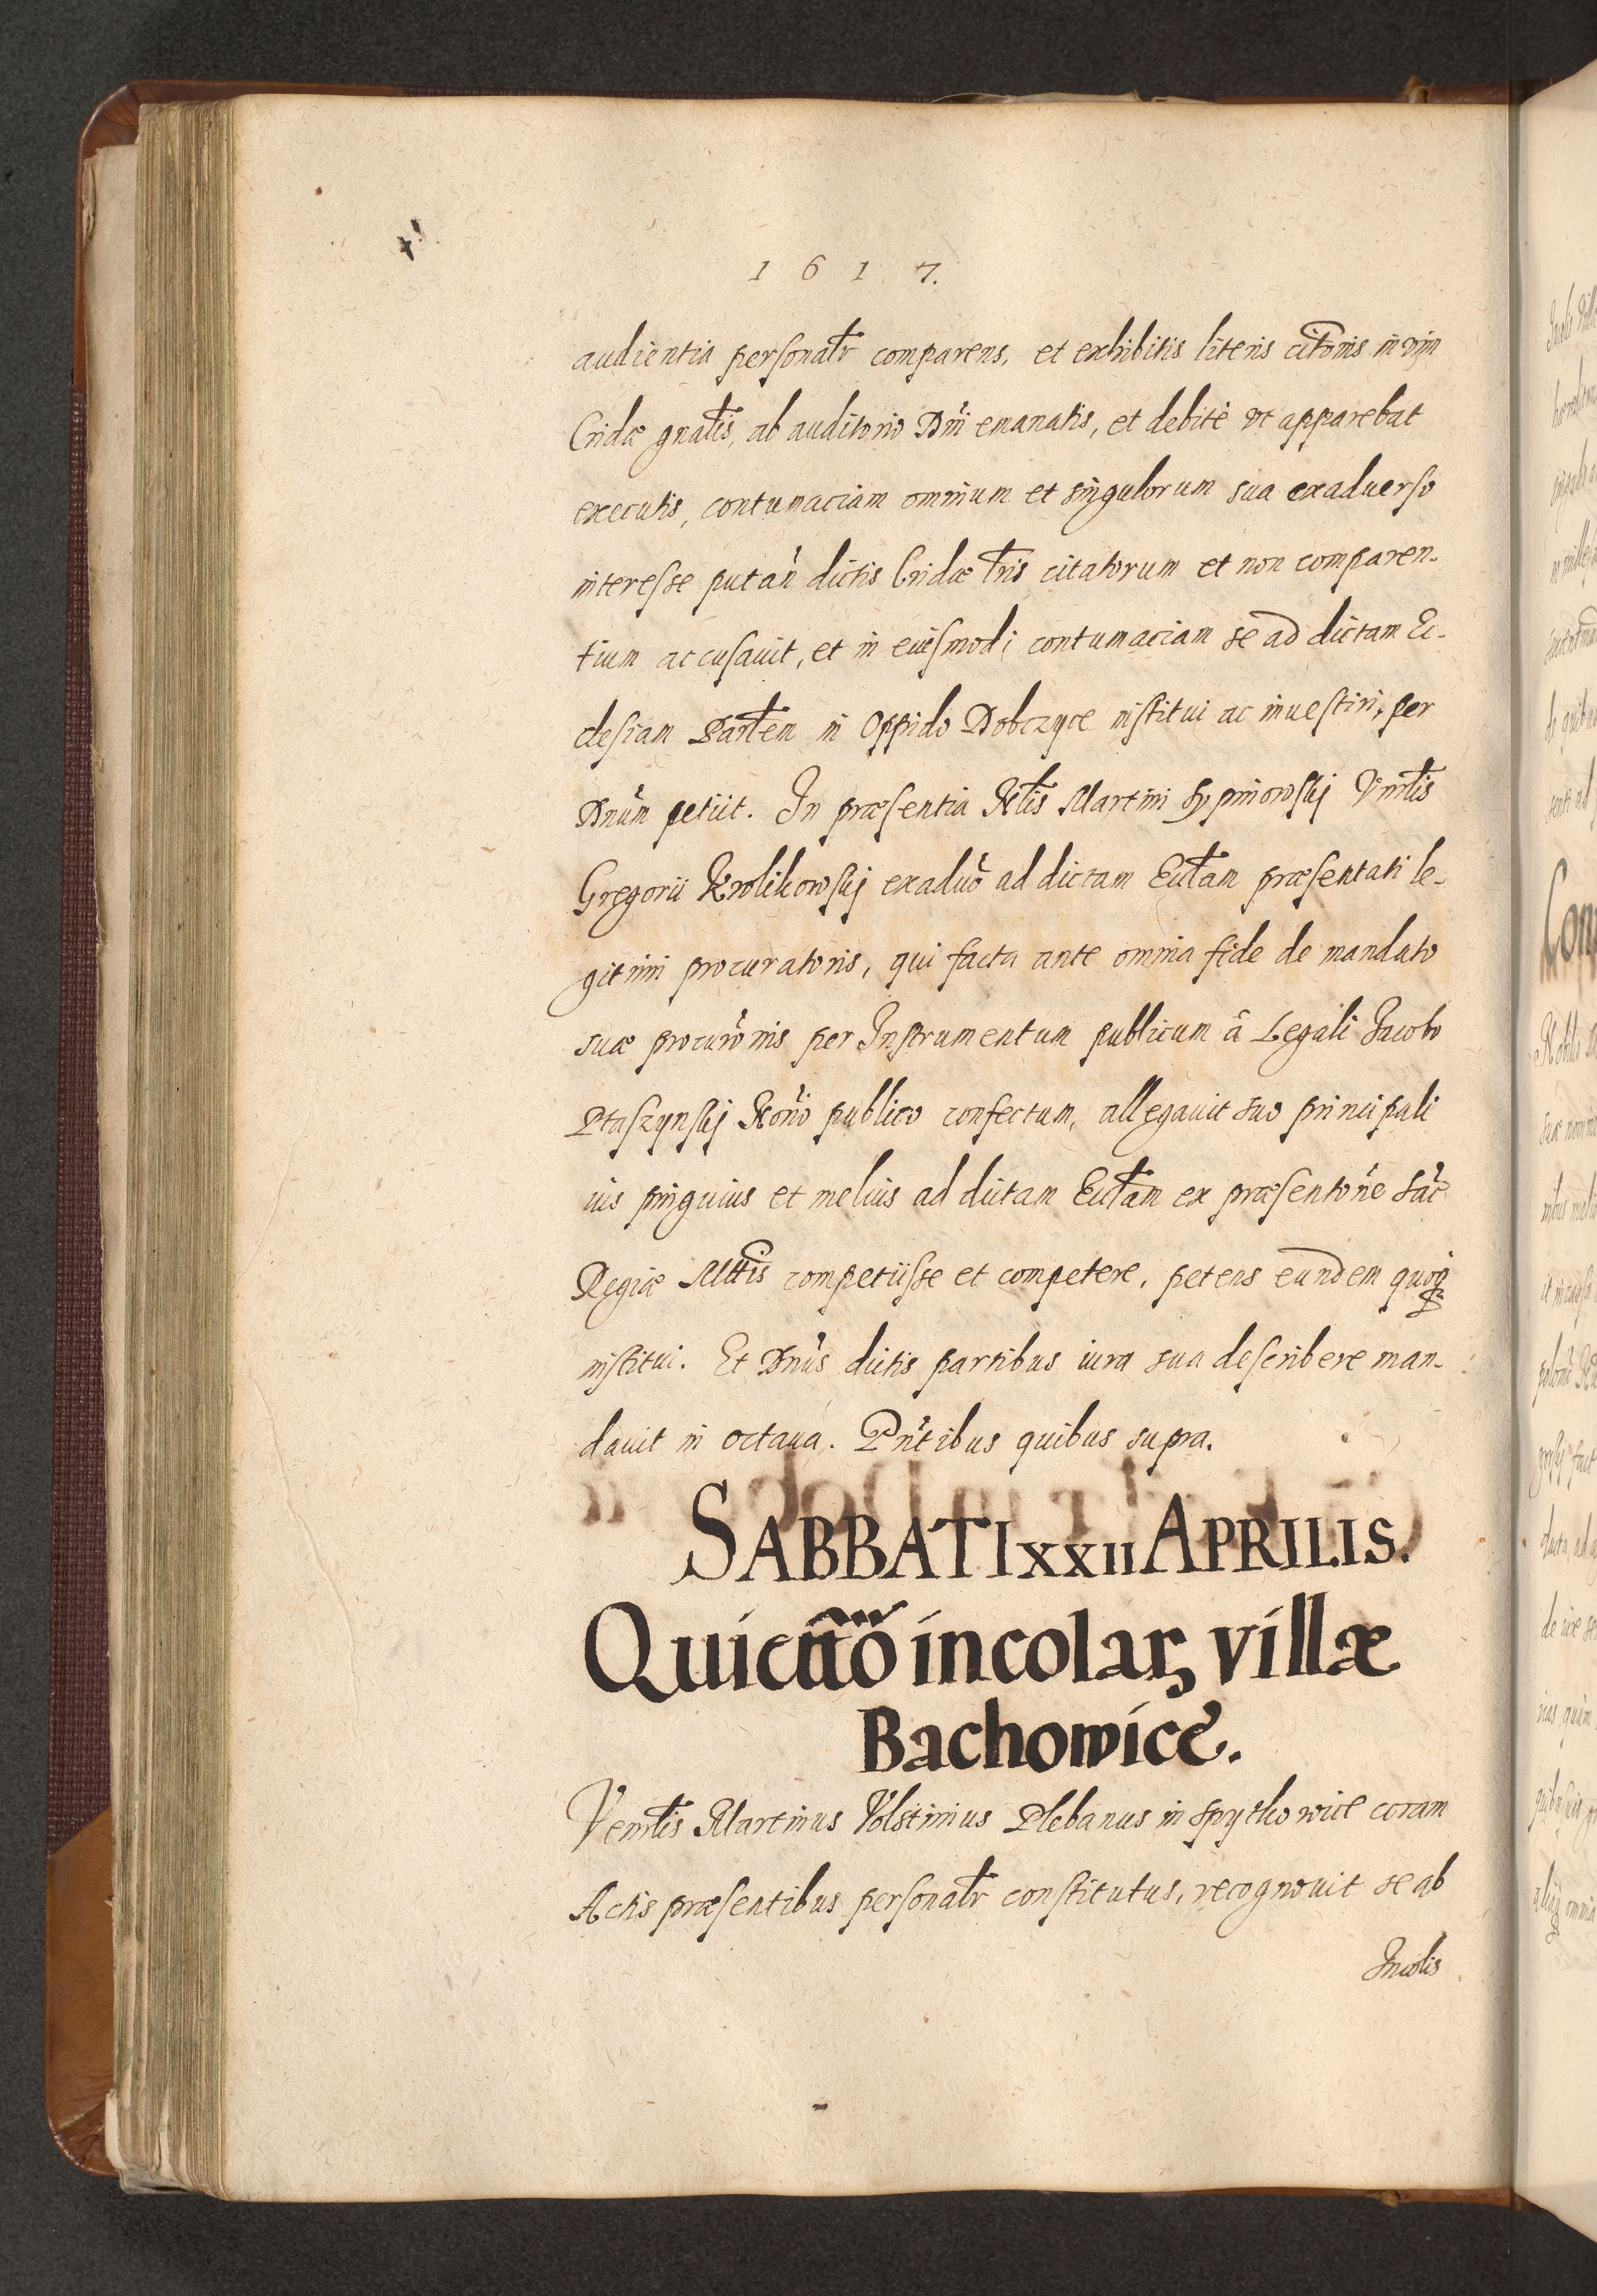 1 6 1 7.
audientia personalr comparens, et exhibitis literis citōnis in vim
Cridæ gnalis, ab auditorio Dni emanatis, et debitè vt apparebat
executis, contumaciam omnium et singulorum sua exaduerso
interesse putan dictis Cridæ lris citatorum et non comparen-
tium accusauit, et in euismodi contumaciam se ad dictam Ec-
clesiam Parlem in Oppido Dobczyce institui ac inuestiri, per
Dnum petiit. In præsentia Nlis Martini Sypniowskj Vnrlis
Gregorii Krolikowskj exaduo ad dictam Ecclam præsentati le-
gitimi procuratoris, qui facta ante omnia fide de mandato
suæ procurōnis per Instrumentum publicum â Legali Jacobo
Ptaszynskj Norio publico confectum, allegauit suo principali
ius pinguius et melius ad dictam Ecclam ex præsentone Sac
Regiæ Mttis competiisse et competere, petens eundem quoq3
institui. Et Dnus dictis partibus iura sua describere man-
dauit in octaua. Pntibus quibus supra.
SABBATI XXII APRILIS.
Quictto incolarꝝ villæ
Bachowice.
Venrlis Martinus Volstinius Plebanus in Spytkowice coram
Actis præsentibus personalr constitutus, recognouit se ab
Incolis